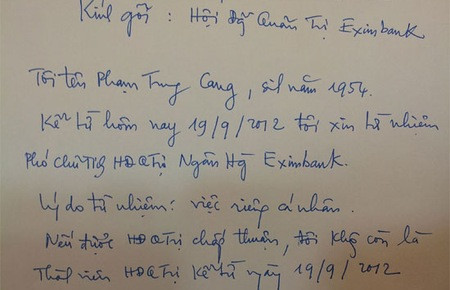 Kính gởi : Hội Đg Quản Trị Eximbank
Tôi tên Phạm Trung Cang, st năm 1954.
Kể từ hôm nay 19/9/2012 tôi xin từ nhiệm
Phó chủ tịch HĐQTrị Ngân Hg Eximbank.
Lý do từ nhiệm: việc riêng cá nhân.
Nếu được HĐQTrị chấp thuận, tôi khg còn là
Thành viên HĐQTrị kể từ ngày 19/9/2012